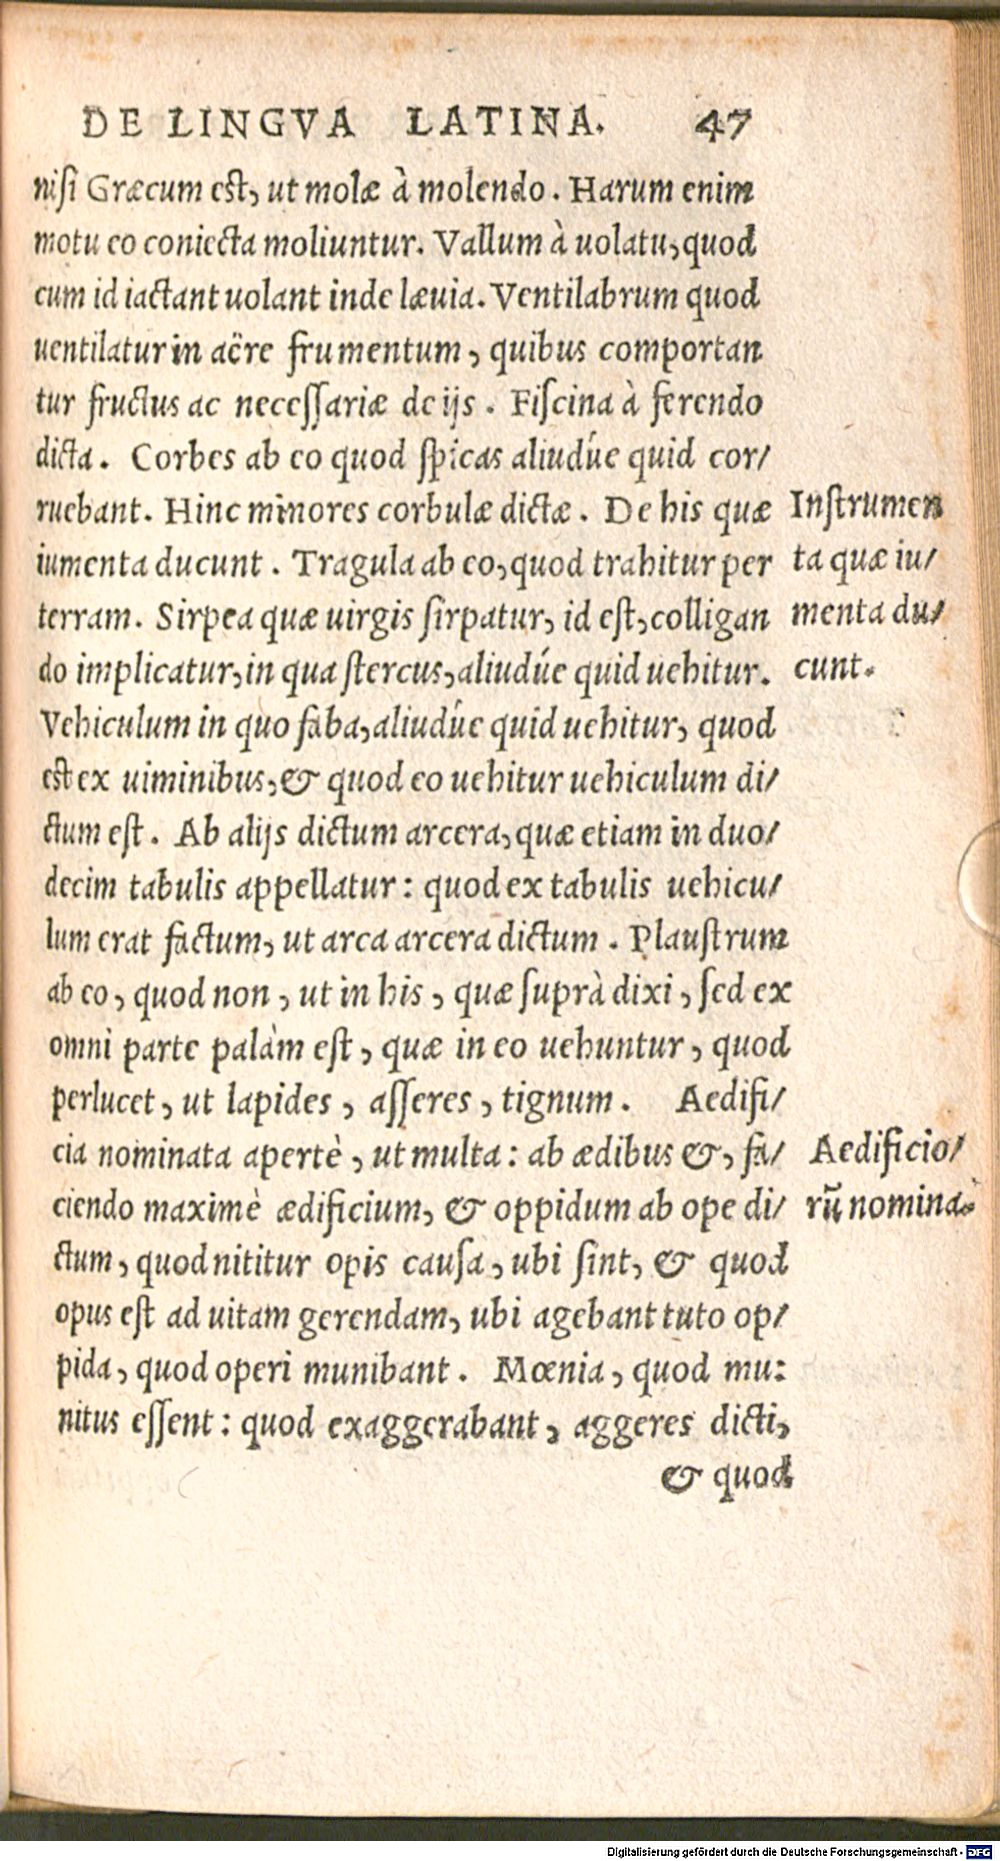 DE LINGVA LATINA. 47
nisi Græcum est, ut molæ à molendo. Harum enim
motu eo coniecta moliuntur. Vallum à uolatu, quod
cum id iactant uolant inde læuia. Ventilabrum quod
uentilatur in aëre frumentum, quibus comportan
tur fructus ac necessariæ de ijs. Fiscina à ferendo
dicta. Corbes ab eo quod spicas aliudúe quid cor/
ruebant. Hinc minores corbulæ dictæ. De his quæ
iumenta ducunt. Tragula ab eo, quod trahitur per
terram. Sirpea quæ uirgis sirpatur, id est, colligan
do implicatur, in qua stercus, aliudúe quid uehitur.
Vehiculum in quo faba, aliudúe quid uehitur, quod
est ex uiminibus, & quod eo uehitur uehiculum di/
ctum est. Ab alijs dictum arcera, quæ etiam in duo/
decim tabulis appellatur: quod ex tabulis uehicu/
lum erat factum, ut arca arcera dictum. Plaustrum
ab eo, quod non, ut in his, quæ suprà dixi, sed ex
omni parte palàm est, quæ in eo uehuntur, quod
perlucet, ut lapides, asseres, tignum. Aedifi/
cia nominata apertè, ut multa: ab ædibus &, fa/
ciendo maximè ædificium, & oppidum ab ope di/
ctum, quod nititur opis causa, ubi sint, & quod
opus est ad uitam gerendam, ubi agebant tuto op/
pida, quod operi munibant. Mœnia, quod mu:
nitus essent: quod exaggerabant, aggeres dicti,
& quod
Instrumen
ta quæ iu/
menta du/
cunt.
Aedificio/
rū nomina.
Digitalisierung gefördert durch die Deutsche Forschungsgemeinschaft - DFG